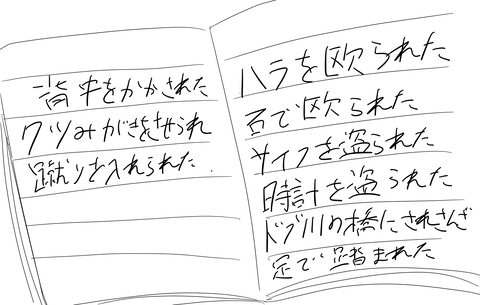 背中をかかされた
クツみがきをさせられ
蹴りを入れられた
ハラを欧られた
石で欧られた
サイフを盗られた
時計を盗られた
ドブ川の橋にされさんざ
足で踏まれた